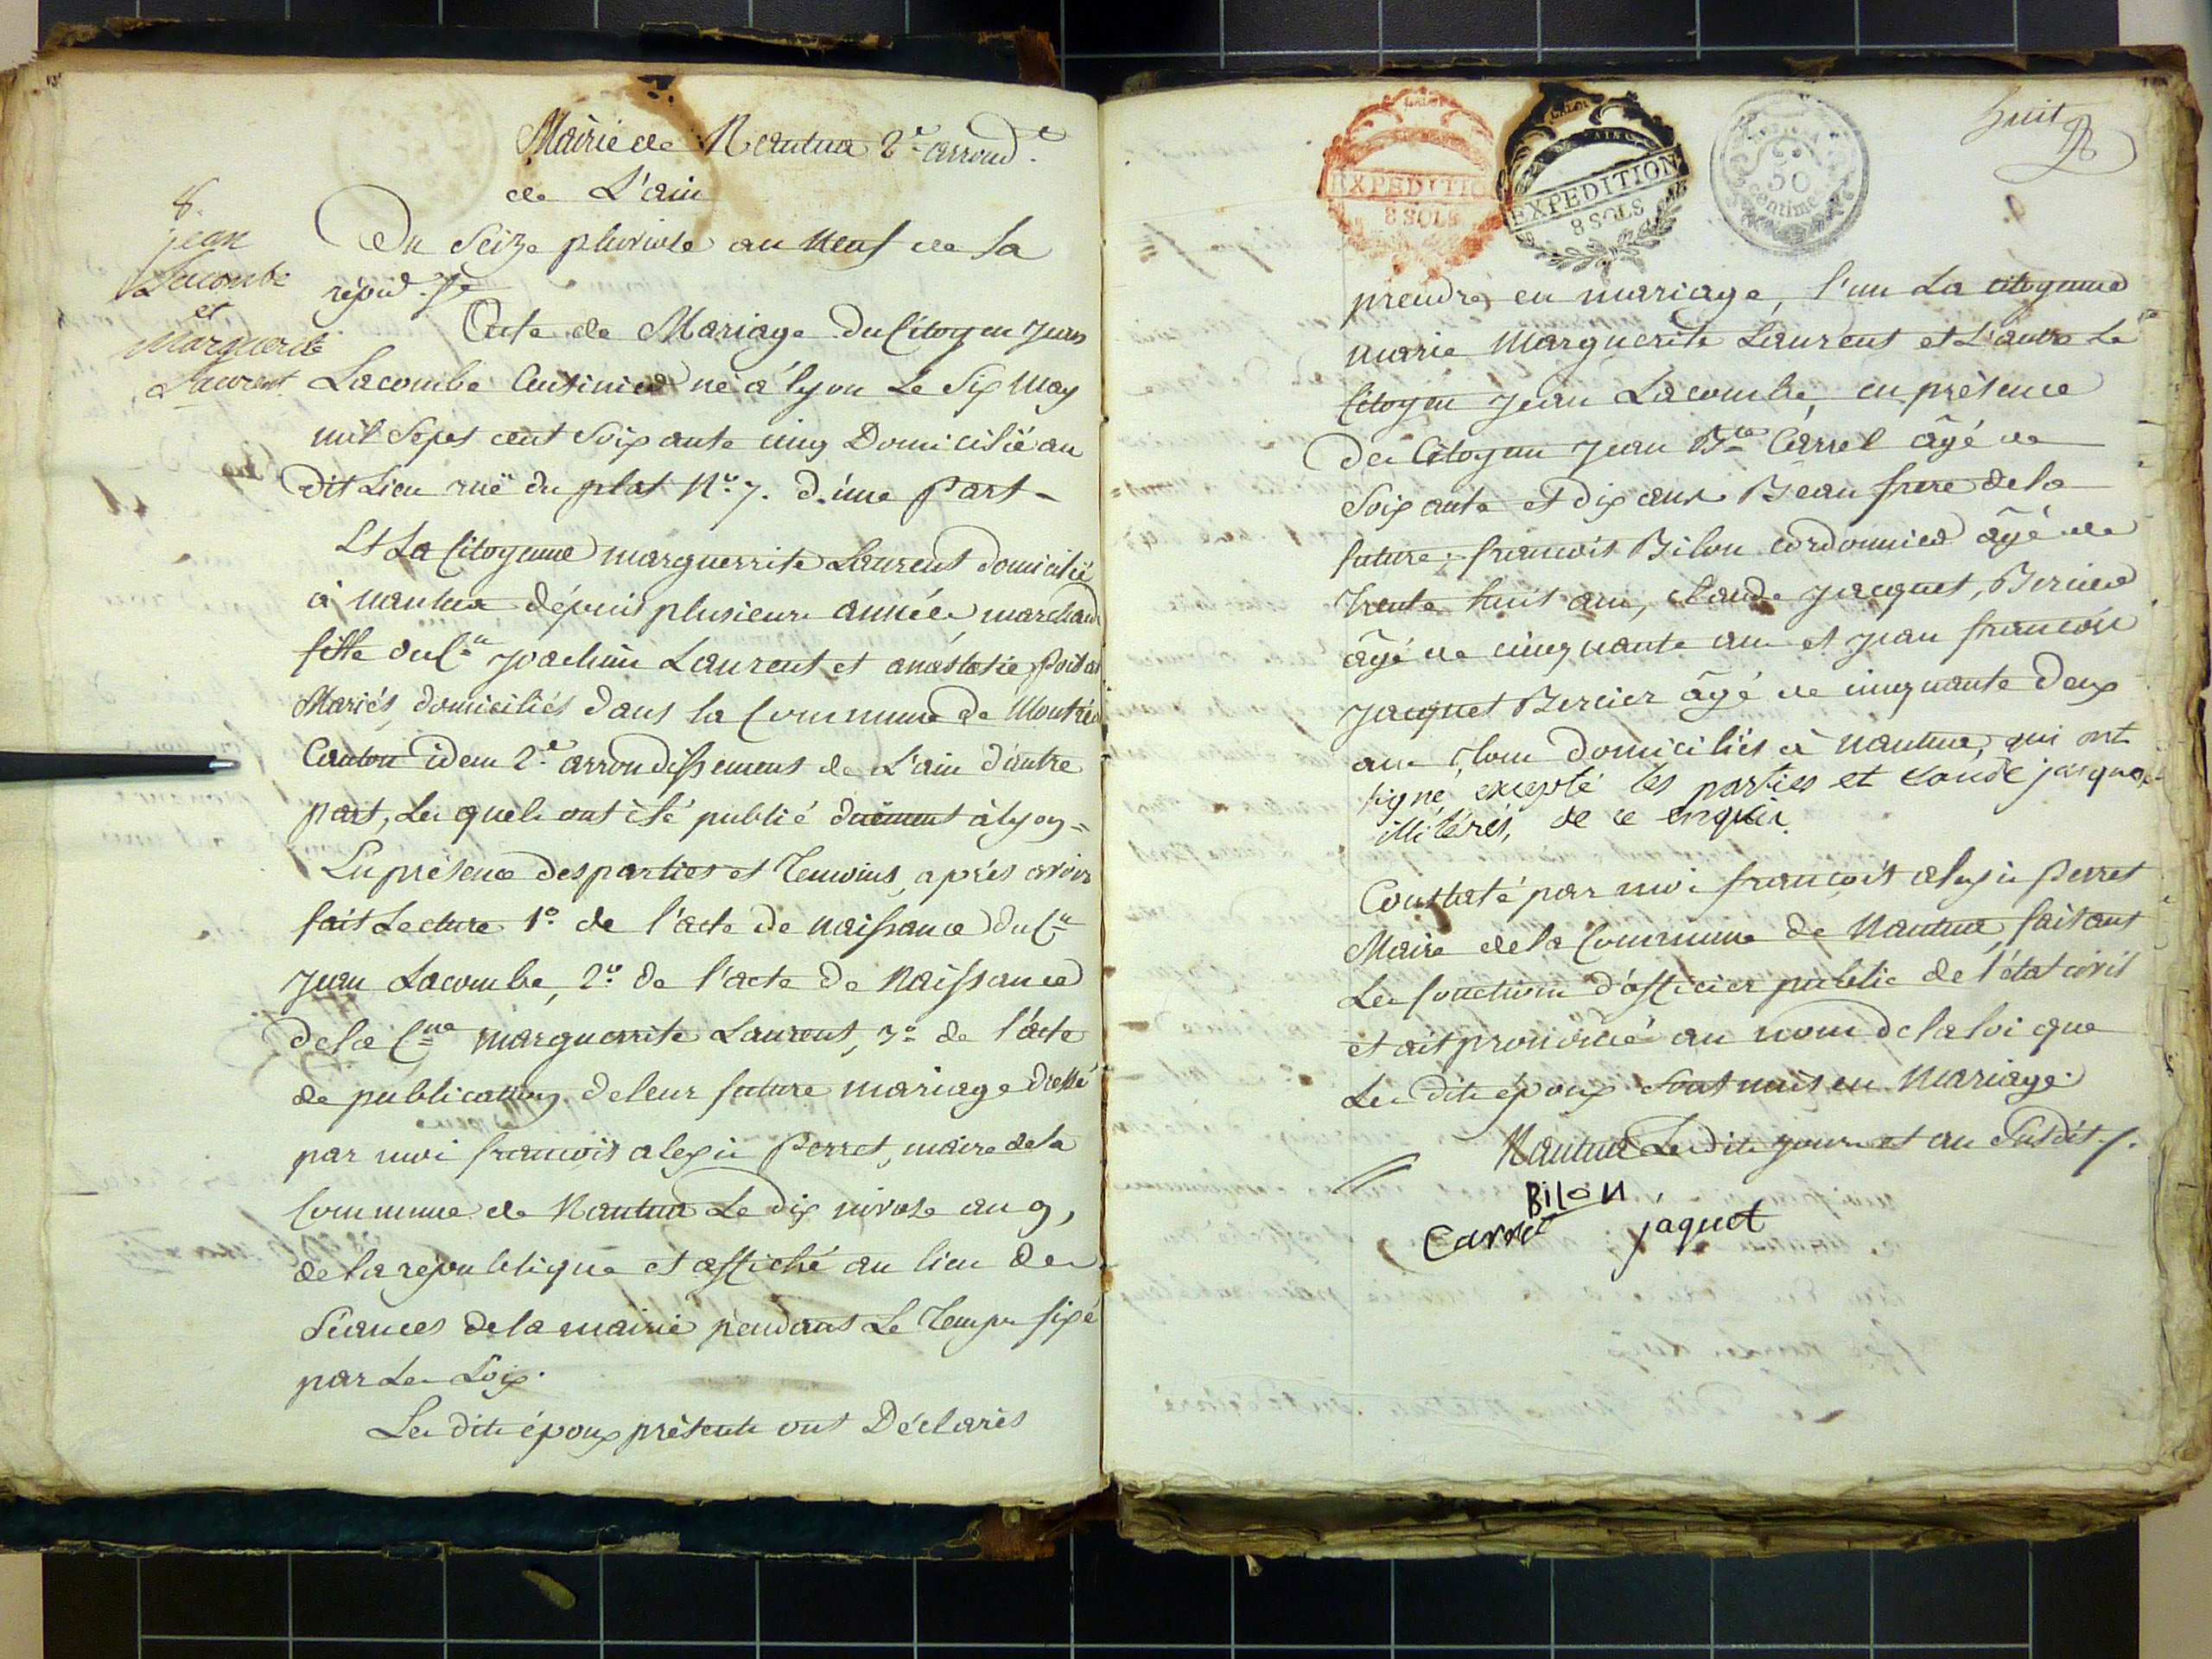 Mairie de Nantua 2e arrondt
de L'ain
8.
jean
Lacombe
et
Marguerite
Laurent
Du Seize pluviose an neuf de la
répud. fse
Acte de Mariage du Citoyen Jean
Lacombe Cuisinier né à lyon Le Six May
mil Sept cent Soixante cinq Domicilié au
dit Lieu ruë du plat No. 7. d'une Part -
Et La Citoyenne marguerrite Laurent domicilié
à nantua dépuis plusieurs années marchande
fille du Cn Joachim Laurent et anastasie
Mariés, domiciliés dans la Commune de Montréal
Canton idem 2e arrondissement de L'ain d'autre
part, Lesquels ont été publié duëment à lyon =
En présence des parties et Temoins, après avoir
fait Lecture 1o de l'acte de naissance du Cn
Jean Lacombe, 2o de l'acte de Naissance
de la Cne marguerrite Laurent, 3o de l'acte
de publication de leur future mariage dressé
par moi francois alexis Perret, maire de la
Commune de Nantua Le dix nivose an 9,
de la république et affiché au lieu des
Séances de la mairie pendant Le Temps fixé
par Les Loix.
Les dits époux présents ont Déclarés
EXPEDITION
8 SOLS
EXPEDITION
8 SOLS
50
centime
huit
prendre en mariage, l'un La citoyenne
marie Marguerite Laurent et L'autre Le
Citoyen Jean Lacombe, en présence
des Citoyens Jean Bte Carrel âgé de
Soixante et dix ans Beau frere de la
future, francois Bilon cordonnier âgé de
trente huit ans, Claude Jacquet, Bercier
âgé de cinquante ans et Jean francois
Jacquet Bercier âgé de cinquante deux
ans, tous domiciliés à nantua, qui ont
signé, excepté les parties et Caude jacquet
illitérés, de ce enquis.
Constaté par moi francois alexis Perret
Maire de la Commune de Nantua faisant
Les fonctions d'officier public de l'état civil
et ait prononcé au nom de la loi que
Les dits époux Sont unis en Mariage
Nantua Les dits jours et an Susdit /.
BiloN
Carrel
jaquet